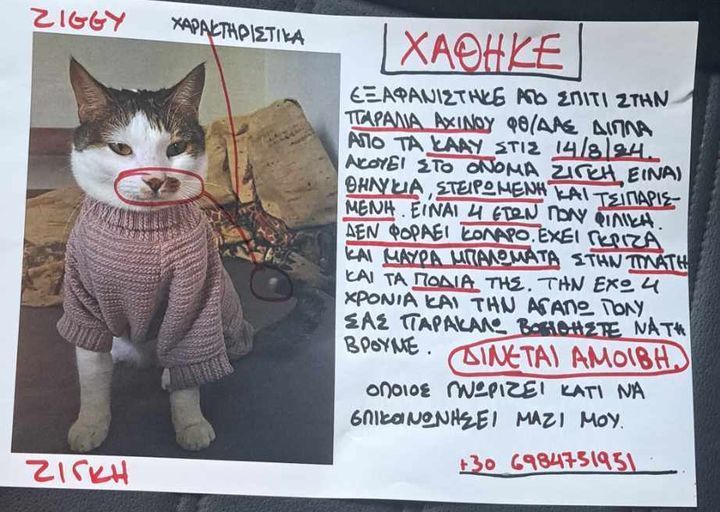 ZIGGY
ΧΑΡΑΚΤΗΡΙΣΤΙΚΑ
ΖΙΓΚΗ
ΧΑΘΗΚΕ
ΕΞΑΦΑΝΙΣΤΗΚΕ ΑΠΟ ΣΠΙΤΙ ΣΤΗΝ
ΠΑΡΑΛΙΑ ΑΧΙΝΟΥ ΦΘ/ΔΑΣ ΔΙΠΛΑ
ΑΠΟ ΤΑ ΚΑΑΥ ΣΤΙΣ 14/8/24.
ΑΚΟΥΕΙ ΣΤΟ ΟΝΟΜΑ ΖΙΓΚΗ, ΕΙΝΑΙ
ΘΗΛΥΚΙΑ, ΣΤΕΙΡΩΜΕΝΗ ΚΑΙ ΤΣΙΠΑΡΙΣ-
ΜΕΝΗ. ΕΙΝΑΙ 4 ΕΤΩΝ ΠΟΛΥ ΦΙΛΙΚΗ.
ΔΕΝ ΦΟΡΑΕΙ ΚΟΛΑΡΟ. ΕΧΕΙ ΓΚΡΙΖΑ
ΚΑΙ ΜΑΥΡΑ ΜΠΑΛΩΜΑΤΑ ΣΤΗΝ ΠΛΑΤΗ
ΚΑΙ ΤΑ ΠΟΔΙΑ ΤΗΣ. ΤΗΝ ΕΧΩ 4
ΧΡΟΝΙΑ ΚΑΙ ΤΗΝ ΑΓΑΠΩ ΠΟΛΥ
ΣΑΣ ΠΑΡΑΚΑΛΩ ΒΟΗΘΗΣΤΕ ΝΑ ΤΗ
ΒΡΟΥΜΕ. ΔΙΝΕΤΑΙ ΑΜΟΙΒΗ.
ΟΠΟΙΟΣ ΓΝΩΡΙΖΕΙ ΚΑΤΙ ΝΑ
ΕΠΙΚΟΙΝΩΝΗΣΕΙ ΜΑΖΙ ΜΟΥ.
+30 6984751951